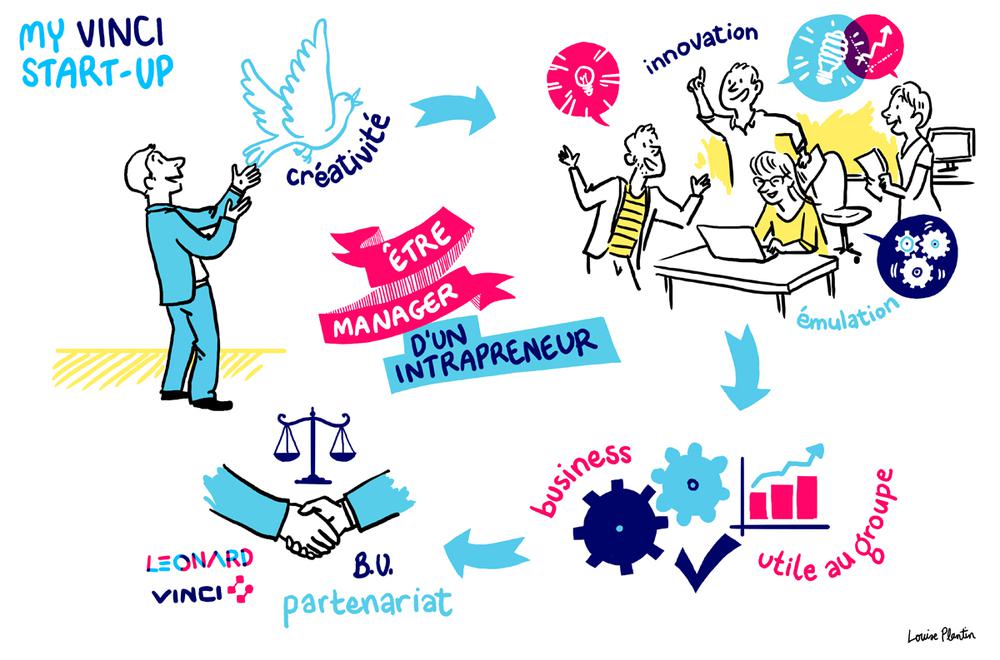 MY VINCI
START-UP
créativité
innovation
émulation
ÊTRE
MANAGER
D'UN
INTRAPRENEUR
business
utile au groupe
LEONARD
VINCI
B.U.
partenariat
Louise Plantin